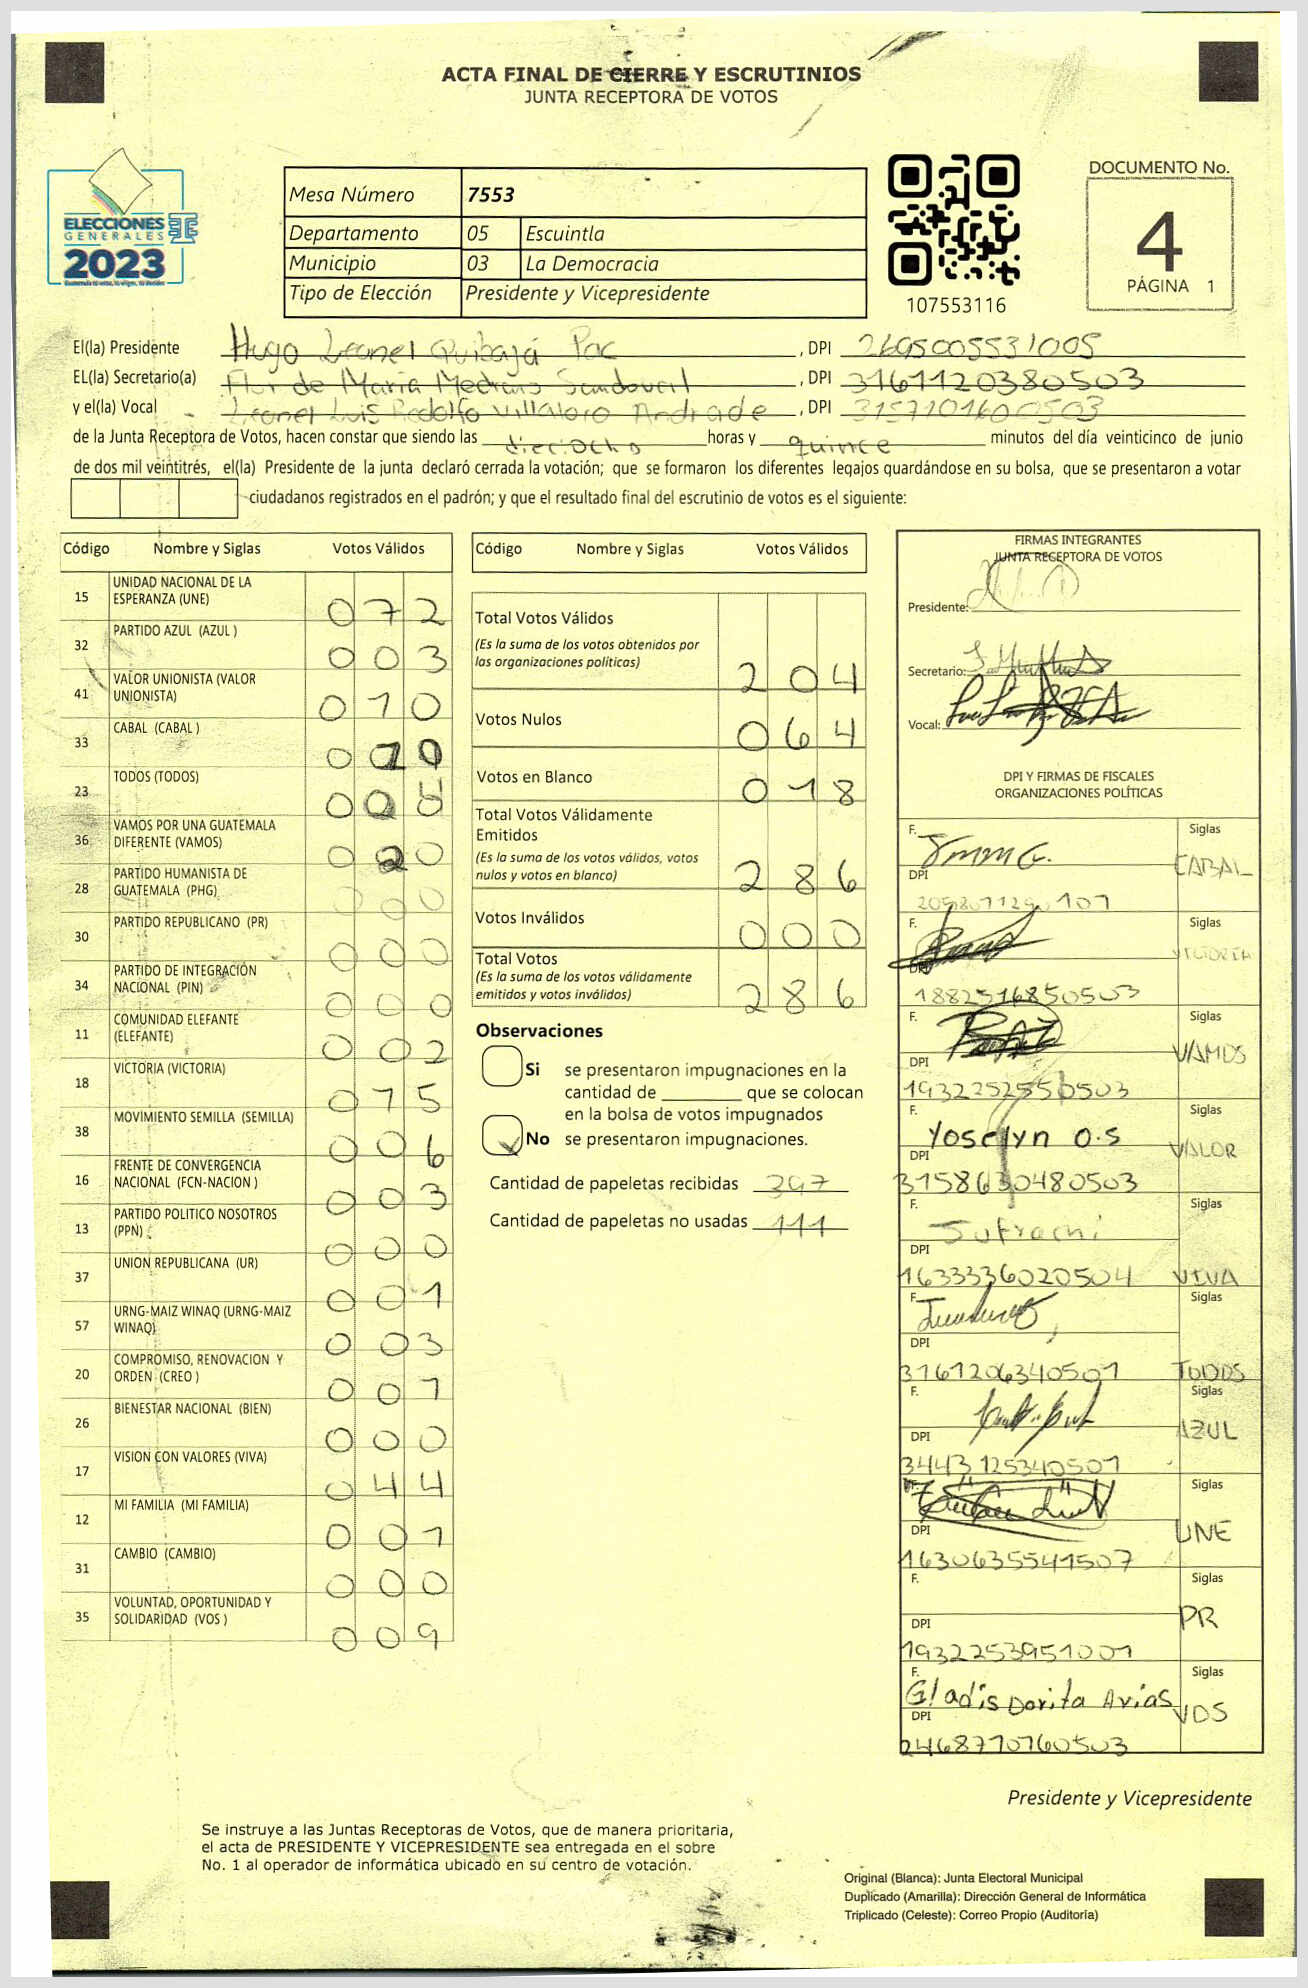 ACTA FINAL DE CIERRE Y ESCRUTINIOS
JUNTA RECEPTORA DE VOTOS
ELECCIONES
GENERALES
2023
Mesa Número 7553
Departamento 05 Escuintla
Municipio 03 La Democracia
Tipo de Elección Presidente y Vicepresidente
107553116
DOCUMENTO No.
4
PÁGINA 1
El(la) Presidente Hugo Leonel Quibajá Pac, DPI 2695005531005
EL(la) Secretario(a) Flor de María Medrano Sandoval, DPI 3161120380503
y el(la) Vocal Leonel Luis Rodolfo Villatoro Andrade, DPI 3157101600503
de la Junta Receptora de Votos, hacen constar que siendo las dieciocho horas y quince minutos del día veinticinco de junio
de dos mil veintitrés, el(la) Presidente de la junta declaró cerrada la votación; que se formaron los diferentes legajos quardándose en su bolsa, que se presentaron a votar
ciudadanos registrados en el padrón; y que el resultado final del escrutinio de votos es el siguiente:
Código Nombre y Siglas Votos Válidos
15 UNIDAD NACIONAL DE LA ESPERANZA (UNE) 072
32 PARTIDO AZUL (AZUL ) 003
41 VALOR UNIONISTA (VALOR UNIONISTA) 010
33 CABAL (CABAL )
23 TODOS (TODOS)
36 VAMOS POR UNA GUATEMALA DIFERENTE (VAMOS) 020
28 PARTIDO HUMANISTA DE GUATEMALA (PHG) 000
30 PARTIDO REPUBLICANO (PR) 000
34 PARTIDO DE INTEGRACIÓN NACIONAL (PIN) 000
11 COMUNIDAD ELEFANTE (ELEFANTE) 002
18 VICTORIA (VICTORIA) 015
38 MOVIMIENTO SEMILLA (SEMILLA) 006
16 FRENTE DE CONVERGENCIA NACIONAL (FCN-NACION ) 003
13 PARTIDO POLITICO NOSOTROS (PPN) 000
37 UNION REPUBLICANA (UR) 001
57 URNG-MAIZ WINAQ (URNG-MAIZ WINAQ) 003
20 COMPROMISO, RENOVACION Y ORDEN (CREO ) 001
26 BIENESTAR NACIONAL (BIEN) 000
17 VISION CON VALORES (VIVA) 044
12 MI FAMILIA (MI FAMILIA) 001
31 CAMBIO (CAMBIO) 000
35 VOLUNTAD, OPORTUNIDAD Y SOLIDARIDAD (VOS ) 009
Código Nombre y Siglas Votos Válidos
Total Votos Válidos
(Es la suma de los votos obtenidos por
las organizaciones políticas) 204
Votos Nulos 064
Votos en Blanco 018
Total Votos Válidamente
Emitidos
(Es la suma de los votos válidos, votos
nulos y votos en blanco) 286
Votos Inválidos 000
Total Votos
(Es la suma de los votos válidamente
emitidos y votos inválidos) 286
Observaciones
Si se presentaron impugnaciones en la
cantidad de ________ que se colocan
en la bolsa de votos impugnados
No se presentaron impugnaciones.
Cantidad de papeletas recibidas 397
Cantidad de papeletas no usadas 111
FIRMAS INTEGRANTES
JUNTA RECEPTORA DE VOTOS
Presidente:
Secretario:
Vocal:
DPI Y FIRMAS DE FISCALES
ORGANIZACIONES POLÍTICAS
F. Siglas CABAL
DPI
F. Siglas VICTORIA
DPI 1882516850503
F. Siglas VAMOS
DPI
F. Yoselyn O.S Siglas VALOR
DPI 3158630480503
F. Siglas VIVA
DPI 1633336020504
F. Siglas TODOS
DPI 3161206340501
F. Siglas AZUL
DPI 3443125340501
F. Siglas UNE
DPI 1630635541507
F. Siglas PR
DPI 1932253951001
F. Gladis Dorita Arias Siglas VOS
DPI 2468770760503
Presidente y Vicepresidente
Se instruye a las Juntas Receptoras de Votos, que de manera prioritaria,
el acta de PRESIDENTE Y VICEPRESIDENTE sea entregada en el sobre
No. 1 al operador de informática ubicado en su centro de votación.
Original (Blanca): Junta Electoral Municipal
Duplicado (Amarilla): Dirección General de Informática
Triplicado (Celeste): Correo Propio (Auditoría)